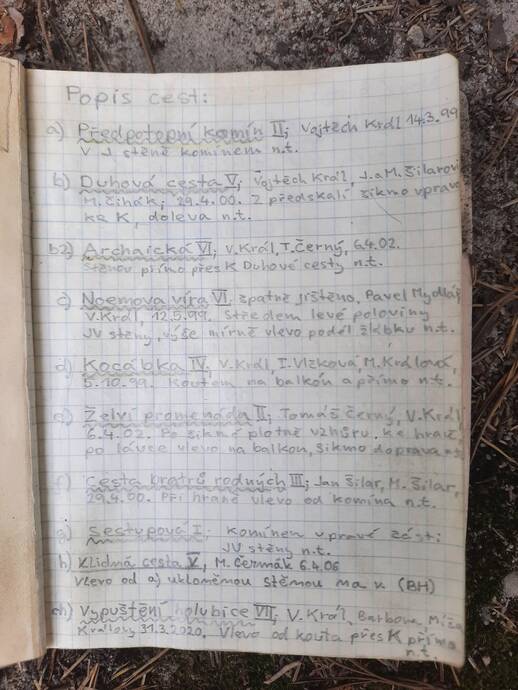 Popis cest:
a) Předpotopní komín II; Vojtěch Král 14.3.99
V J. stěně komínem n.t.
b) Duhová cesta V; Vojtěch Král, J. a M. Šilarovi
M. Čihák; 29.4.00. Z předskalí šikmo vpravo
ke K, doleva n.t.
b2) Archaická VI; V. Král, T. Černý, 6.4.02.
Stěnou přímo přes K Duhové cesty n.t.
c) Noemova víra VI, špatně jištěno, Pavel Mydlář
V. Král, 12.5.99. Středem levé poloviny
JV stěny, výše mírně vlevo podél žlábku n.t.
d) Kocábka IV, V. Král, I. Vlžková, M. Králová,
5.10.99. Koutem na balkón a přímo n.t.
e) Želví promenáda II; Tomáš Černý, V. Král
6.4.02. Po šikmé plotně vzhůru, ke hraně,
po lávce vlevo na balkon, šikmo doprava n.t
f) Cesta bratrů rodných III; Jan Šilar, M. Šilar,
29.4.00. Při hraně vlevo od komína n.t.
g) Sestupová I; Komínem v pravé části
JV stěny n.t.
h) Klidná cesta V, M. Čermák 6.4.06
Vlevo od a) ukloněnou stěnou na v. (BH)
ch) Vypuštění holubice VII; V. Král, Barbora, Míša
Královy 31.3.2020, Vlevo od kouta přes K přímo
n.t.